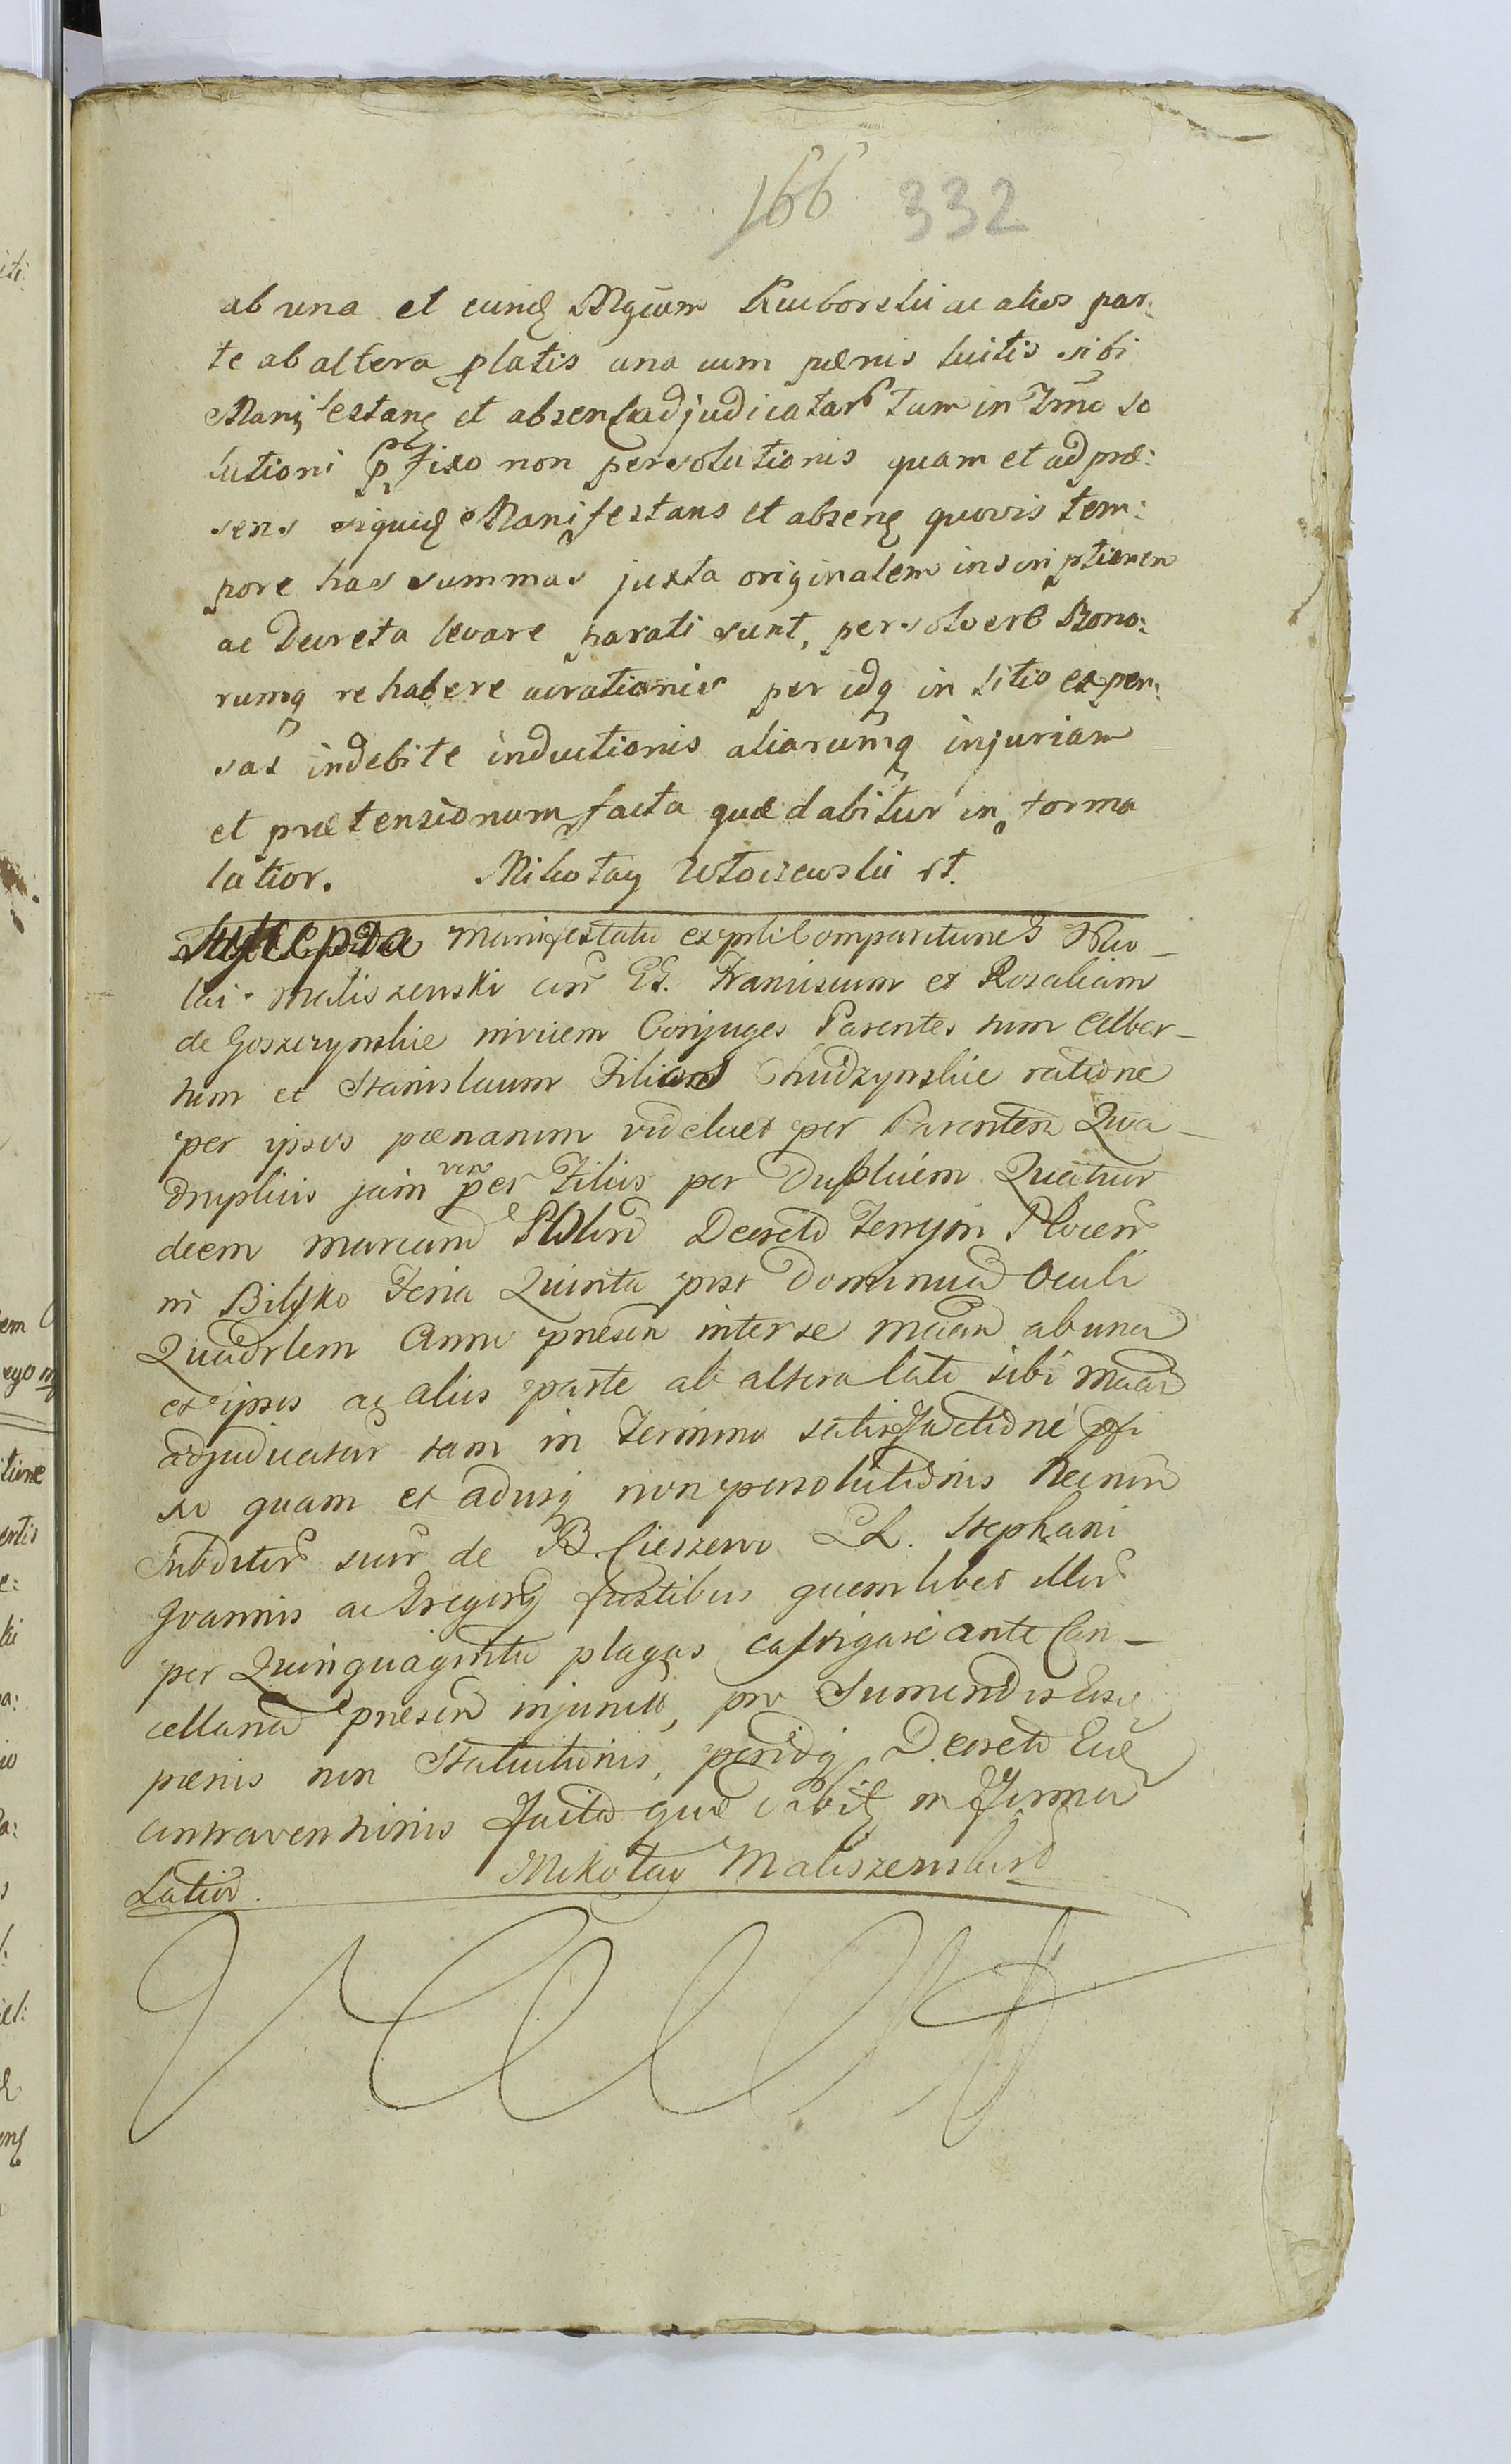 166 332
ab una et eund Mgcum Kuiborski ac alios par:
te ab altera platis una cum pœnis luitis sibi
Manifestan et absen adjudicatar tum in Tmo so
lutioni præfixo non persolutionis quam et ad præ:
sens siquid Manifestans et absens quovis tem:
pore has summas juxta originalem inscriptionem
ac Decreta levare parati sunt, persolvere Bono:
rumq rehabere acrationis per idq in litio expen:
sas indebite inductionis aliarumq injuriam
et prætensionum facta quæ dabitur in forma
latior. Mikołay Włoczewski st.
Suscepta Manifestatio ex pli Comparitune Nico_
lai Maliszewski con GG. Franciscum et Rosaliam
de Goszczynskie invicem Conjuges Parentes tum Alber_
tum et Stanislaum Filios Chudzynskie ratione
per ipsos pœnarum videlicet per Parentem Qua_
druplicis jam vero per Filios per Duplicem Quatuor
decem marcarum Polon Decreto Terryin Plocen
in Bilsko Feria Quinta post Dominicam Oculi
Quadrlem Anni præsen inter se Maan ab una
et ipsos ac alios parte ab altera lato sibi Maan
adjudicatar tam in Termino satisfactioni pfi
xo quam et adusq non persolutionis Necnon
Subditor suor de B Cieszewo LL. Stephani
Joannis ac Gregorij fustibus quemlibet illor
per Quinquaginta plagas castigari ante Can_
cellariam præsen injuncto, pro Sumendis Eisd
pœnis non Statuitionis, peridq Decreto Eid
contraventionis facta quæ dabit in forma
Latior. Mikołay Maliszewski